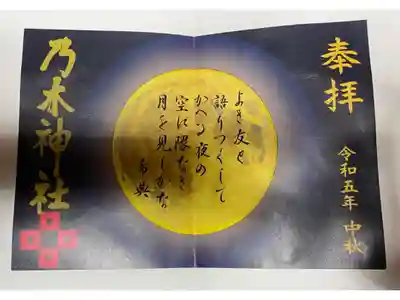 奉拝
令和五年 中秋
よき友と
語りつくして
かへる夜の
空に隈なき
月を見しかな
希典
乃木神社